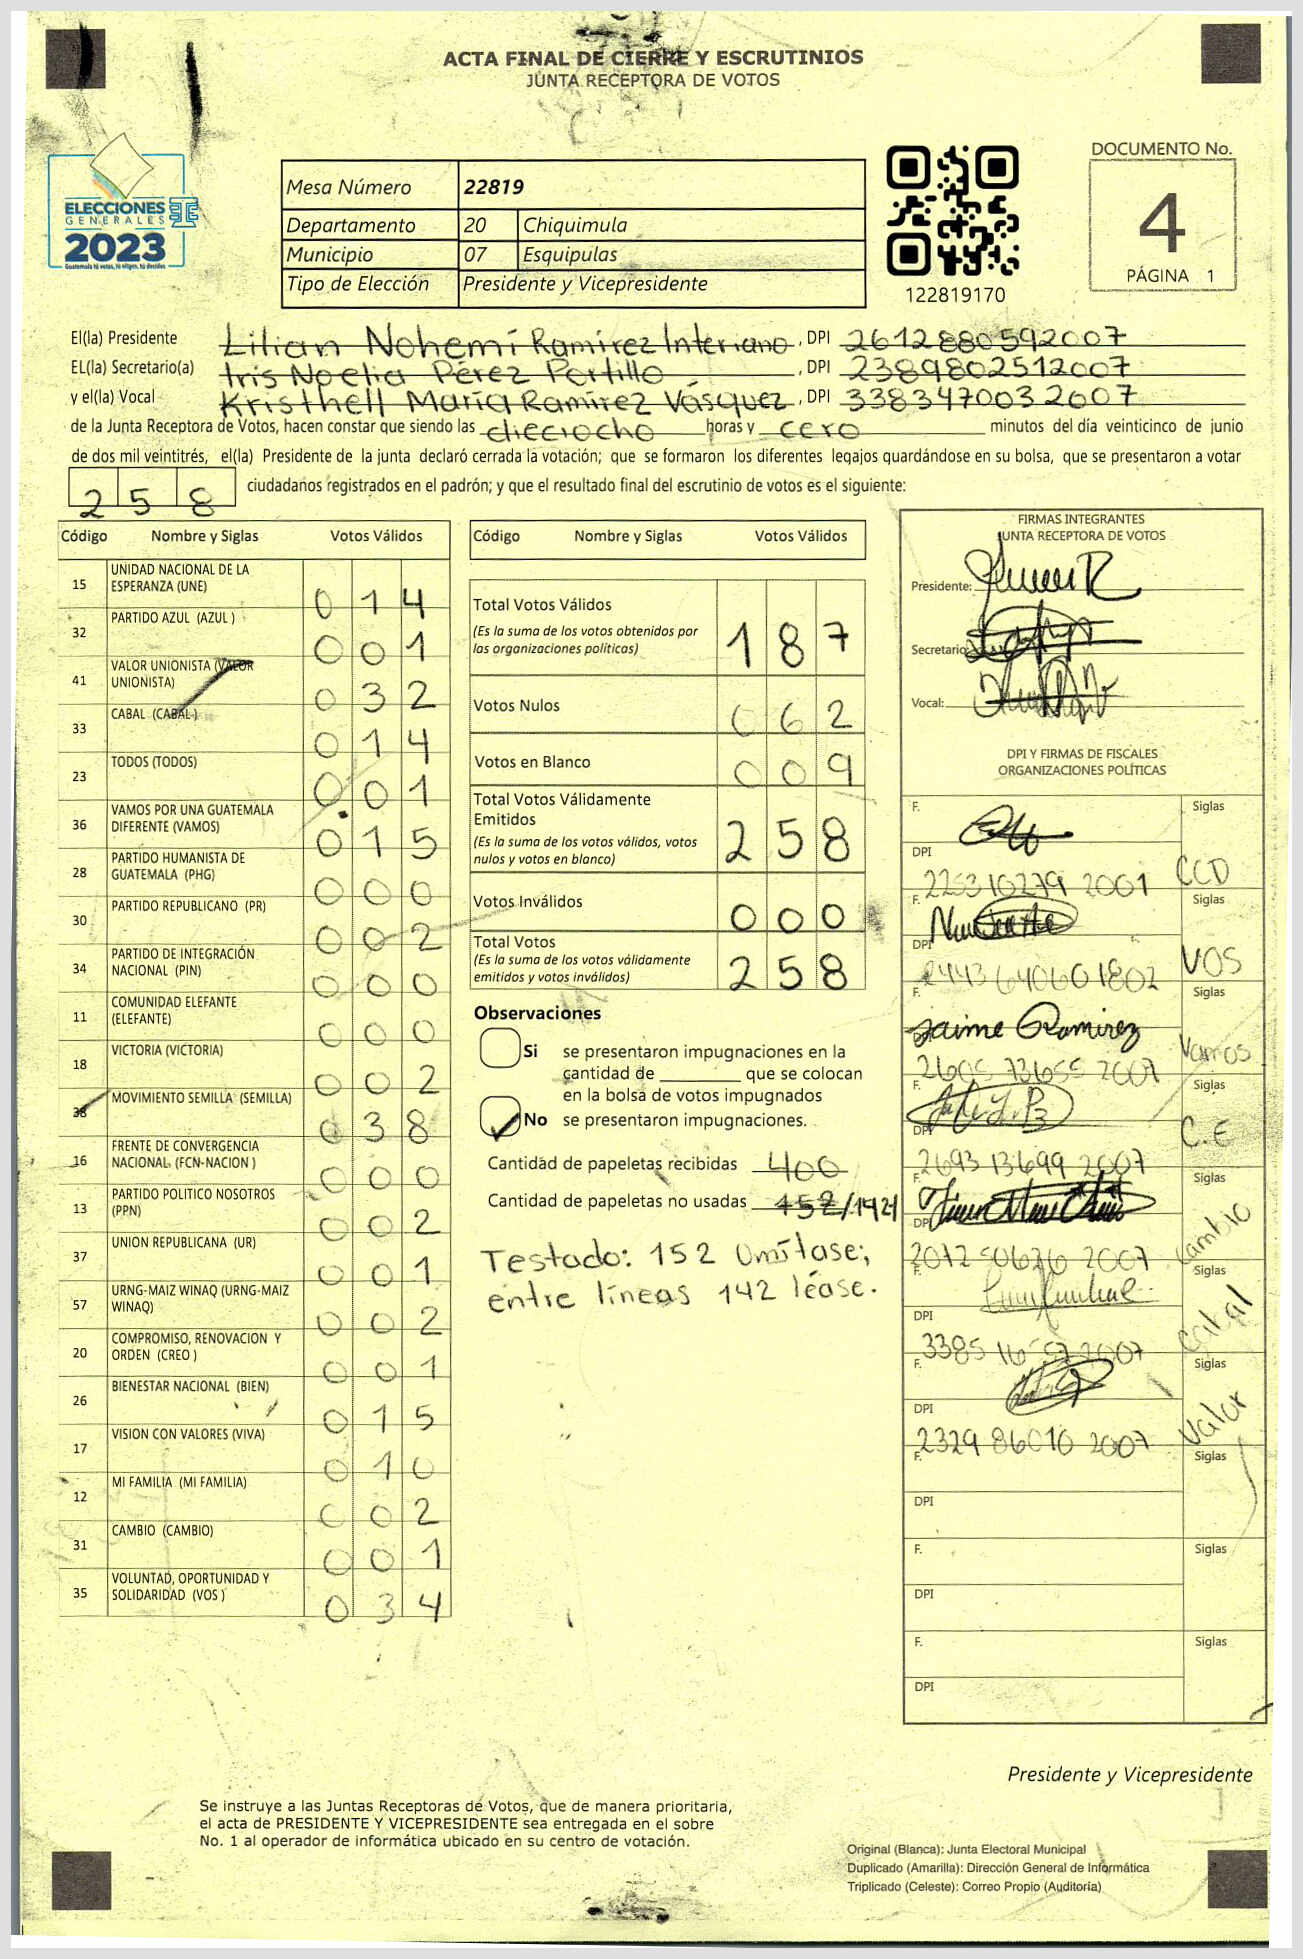 ACTA FINAL DE CIERRE Y ESCRUTINIOS
JUNTA RECEPTORA DE VOTOS
ELECCIONES
GENERALES
2023
Guatemala tú votas, tú eliges, tú decides
Mesa Número 22819
Departamento 20 Chiquimula
Municipio 07 Esquipulas
Tipo de Elección Presidente y Vicepresidente
122819170
DOCUMENTO No.
4
PÁGINA 1
El(la) Presidente Lilian Nohemí Ramírez Interiano, DPI 2612880592007
EL(la) Secretario(a) Iris Noelia Pérez Portillo, DPI 2389802512007
y el(la) Vocal Kristhell María Ramírez Vásquez, DPI 3383470032007
de la Junta Receptora de Votos, hacen constar que siendo las dieciocho horas y cero minutos del día veinticinco de junio
de dos mil veintitrés, el(la) Presidente de la junta declaró cerrada la votación; que se formaron los diferentes legajos guardándose en su bolsa, que se presentaron a votar
258 ciudadanos registrados en el padrón; y que el resultado final del escrutinio de votos es el siguiente:
Código Nombre y Siglas Votos Válidos
15 UNIDAD NACIONAL DE LA ESPERANZA (UNE) 014
32 PARTIDO AZUL (AZUL ) 001
41 VALOR UNIONISTA (VALOR UNIONISTA) 032
33 CABAL (CABAL ) 014
23 TODOS (TODOS) 001
36 VAMOS POR UNA GUATEMALA DIFERENTE (VAMOS) 015
28 PARTIDO HUMANISTA DE GUATEMALA (PHG) 000
30 PARTIDO REPUBLICANO (PR) 002
34 PARTIDO DE INTEGRACIÓN NACIONAL (PIN) 000
11 COMUNIDAD ELEFANTE (ELEFANTE) 000
18 VICTORIA (VICTORIA) 002
38 MOVIMIENTO SEMILLA (SEMILLA) 038
16 FRENTE DE CONVERGENCIA NACIONAL (FCN-NACION ) 000
13 PARTIDO POLITICO NOSOTROS (PPN) 002
37 UNION REPUBLICANA (UR) 001
57 URNG-MAIZ WINAQ (URNG-MAIZ WINAQ) 002
20 COMPROMISO, RENOVACION Y ORDEN (CREO ) 001
26 BIENESTAR NACIONAL (BIEN) 015
17 VISION CON VALORES (VIVA) 010
12 MI FAMILIA (MI FAMILIA) 002
31 CAMBIO (CAMBIO) 001
35 VOLUNTAD, OPORTUNIDAD Y SOLIDARIDAD (VOS ) 034
Código Nombre y Siglas Votos Válidos
Total Votos Válidos 187
(Es la suma de los votos obtenidos por
las organizaciones políticas)
Votos Nulos 062
Votos en Blanco 009
Total Votos Válidamente
Emitidos 258
(Es la suma de los votos válidos, votos
nulos y votos en blanco)
Votos Inválidos 000
Total Votos 258
(Es la suma de los votos válidamente
emitidos y votos inválidos)
Observaciones
Si se presentaron impugnaciones en la
cantidad de ________ que se colocan
en la bolsa de votos impugnados
No se presentaron impugnaciones.
Cantidad de papeletas recibidas 400
Cantidad de papeletas no usadas 152/142
Testado: 152 Omítase;
entre líneas 142 léase.
FIRMAS INTEGRANTES
JUNTA RECEPTORA DE VOTOS
Presidente:
Secretario:
Vocal:
DPI Y FIRMAS DE FISCALES
ORGANIZACIONES POLÍTICAS
F. Siglas
DPI 2253 10279 2001 CCD
F. Siglas
DPI 2443 64060 1802 VOS
F. Jaime Ramirez Siglas
DPI 2605 73655 2007 Vamos
F. Siglas
DPI 2693 13699 2007 C.E
F. Siglas
DPI 2072 50626 2007 Cambio
F. Siglas
DPI 3385 2007 Cabal
F. Siglas
DPI 2329 86010 2007 Valor
F. Siglas
DPI
F. Siglas
DPI
F. Siglas
DPI
Presidente y Vicepresidente
Se instruye a las Juntas Receptoras de Votos, que de manera prioritaria,
el acta de PRESIDENTE Y VICEPRESIDENTE sea entregada en el sobre
No. 1 al operador de informática ubicado en su centro de votación.
Original (Blanca): Junta Electoral Municipal
Duplicado (Amarilla): Dirección General de Informática
Triplicado (Celeste): Correo Propio (Auditoría)